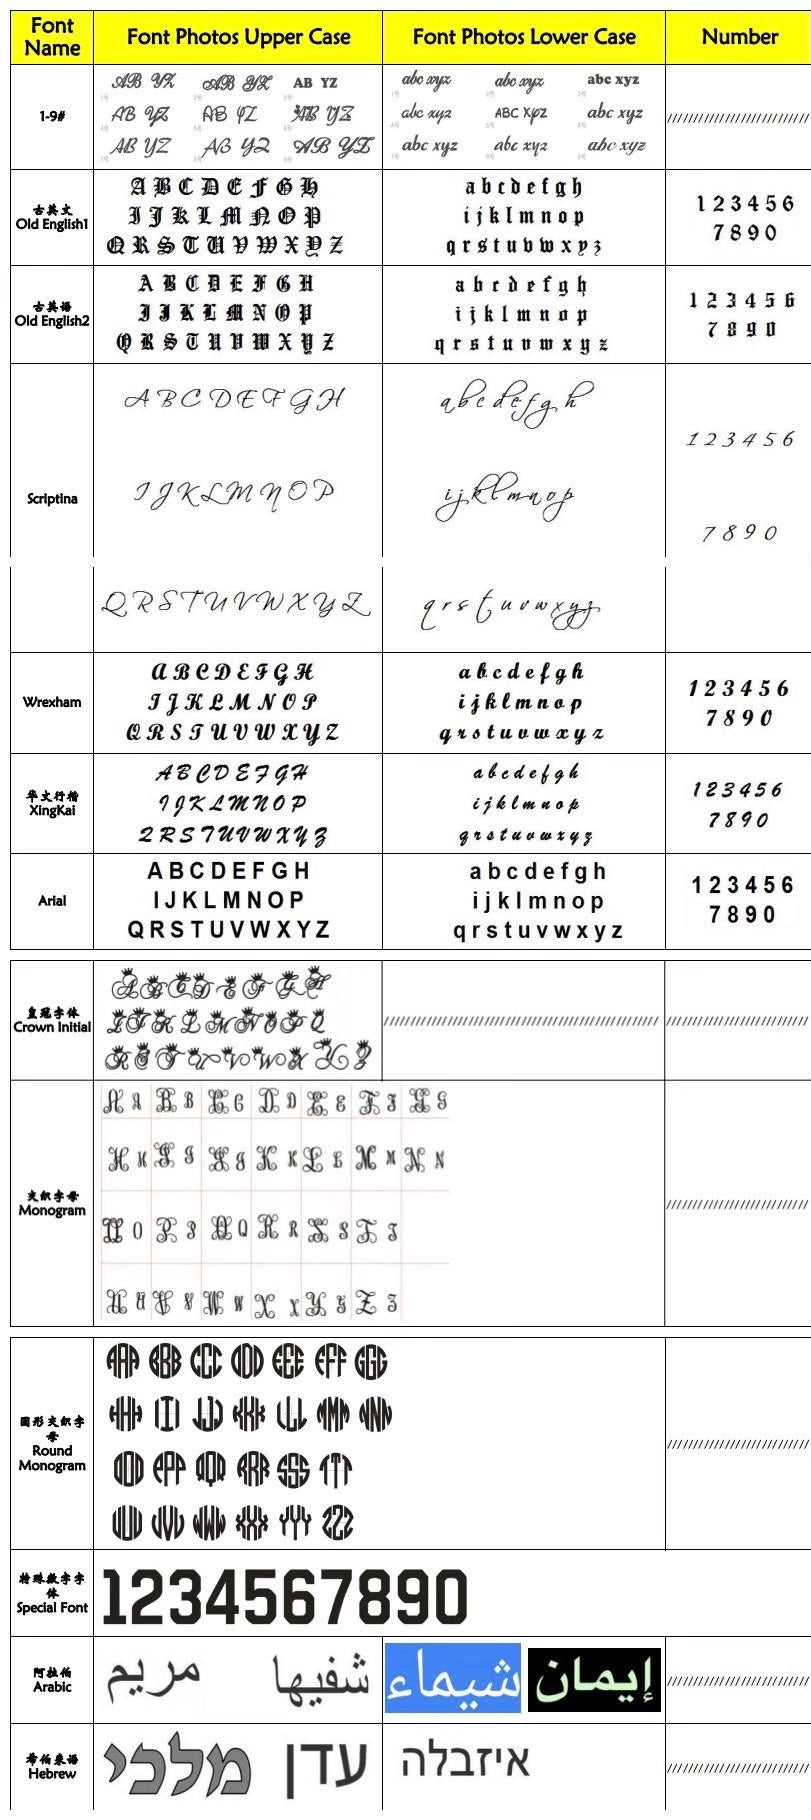 Font Name Font Photos Upper Case Font Photos Lower Case Number
1-9#
AB YZ AB YZ AB YZ
AB YZ AB YZ AB YZ
AB YZ AB YZ AB YZ
abc xyz abc xyz abc xyz
abc xyz ABC XYZ abc xyz
abc xyz abc xyz abc xyz
古英文
Old English1
A B C D E F G H
I J K L M N O P
Q R S T U V W X Y Z
a b c d e f g h
i j k l m n o p
q r s t u v w x y z
1 2 3 4 5 6
7 8 9 0
古英语
Old English2
A B C D E F G H
I J K L M N O P
Q R S T U V W X Y Z
a b c d e f g h
i j k l m n o p
q r s t u v w x y z
1 2 3 4 5 6
7 8 9 0
Scriptina
A B C D E F G H
I J K L M N O P
Q R S T U V W X Y Z
a b c d e f g h
i j k l m n o p
q r s t u v w x y z
1 2 3 4 5 6
7 8 9 0
Wrexham
A B C D E F G H
I J K L M N O P
Q R S T U V W X Y Z
a b c d e f g h
i j k l m n o p
q r s t u v w x y z
1 2 3 4 5 6
7 8 9 0
华文行楷
XingKai
A B C D E F G H
I J K L M N O P
Q R S T U V W X Y Z
a b c d e f g h
i j k l m n o p
q r s t u v w x y z
1 2 3 4 5 6
7 8 9 0
Arial
A B C D E F G H
I J K L M N O P
Q R S T U V W X Y Z
a b c d e f g h
i j k l m n o p
q r s t u v w x y z
1 2 3 4 5 6
7 8 9 0
皇冠字体
Crown Initial
A B C D E F G H
I J K L M N O P Q
R S T U V W X Y Z
交织字母
Monogram
A A B B C C D D E E F F G G
H H I I J J K K L L M M N N
O O P P Q Q R R S S T T
U U V V W W X X Y Y Z Z
圆形交织字母
Round Monogram
AAA BBB CCC DDD EEE FFF GGG
HHH III JJJ KKK LLL MMM NNN
OOO PPP QQQ RRR SSS TTT
UUU VVV WWW XXX YYY ZZZ
特殊数字字体
Special Font
1234567890
阿拉伯
Arabic
مريم شفيها شيماء إيمان
希伯来语
Hebrew
מלכי עדן איזבלה